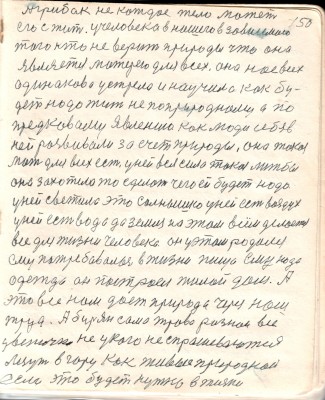 150
А грибак не каждое тело может
его сжит. учеловека внашего взависимого
того кто не верит природи что она
является матерю для всех. она на всех
одинакова устроила и научила как бу-
дет надо жит не поприродному а по
предковому явленю как люди себя в
ней развивали за счет природы, она такая
мат для всех ест, у ней вся сила такая чтобы
она захотела то сделат чего ей будет нада
у ней светила это солнышко у ней ест воздух
у ней ест вода да земля на этом всем делается
все для жизни человека он у этом родился
ему потребавалася в жизни пища ему нада
одежда он построел жилой дом. А
это все нам дает природа через наш
труд. А бурян сама трава разная все
цветочки не у кого не спрашеваются
лезут в гору как живые природной
если это будет нужно в жизни